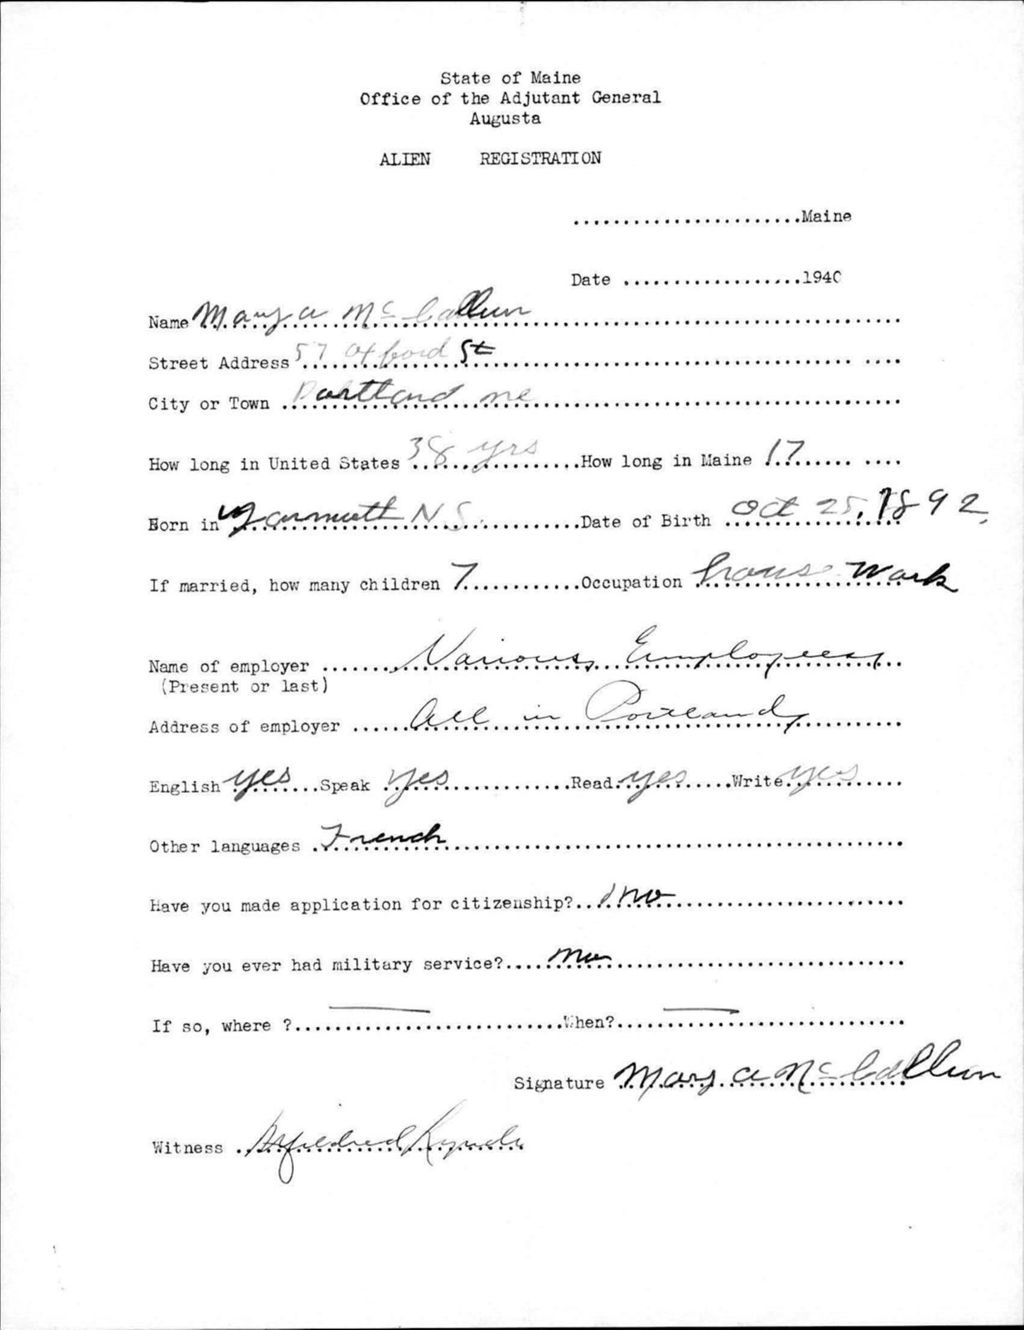 State of Maine
Office of the Adjutant General
Augusta
ALIEN REGISTRATION
.......................Maine
Date ..................1940
Name Mary a Mc Callum
Street Address 57 Oxford St
City or Town Portland me
How long in United States 38 yrs How long in Maine 17
Born in Yarmouth N S. Date of Birth Oct 25, 1892,
If married, how many children 7 Occupation house Work
Name of employer Various Employees
(Present or last)
Address of employer All in Portland
English yes Speak yes Read yes Write yes
Other languages French
Have you made application for citizenship? no
Have you ever had military service? no
If so, where ? — When? —
Signature Mary a Mc Callum
Witness